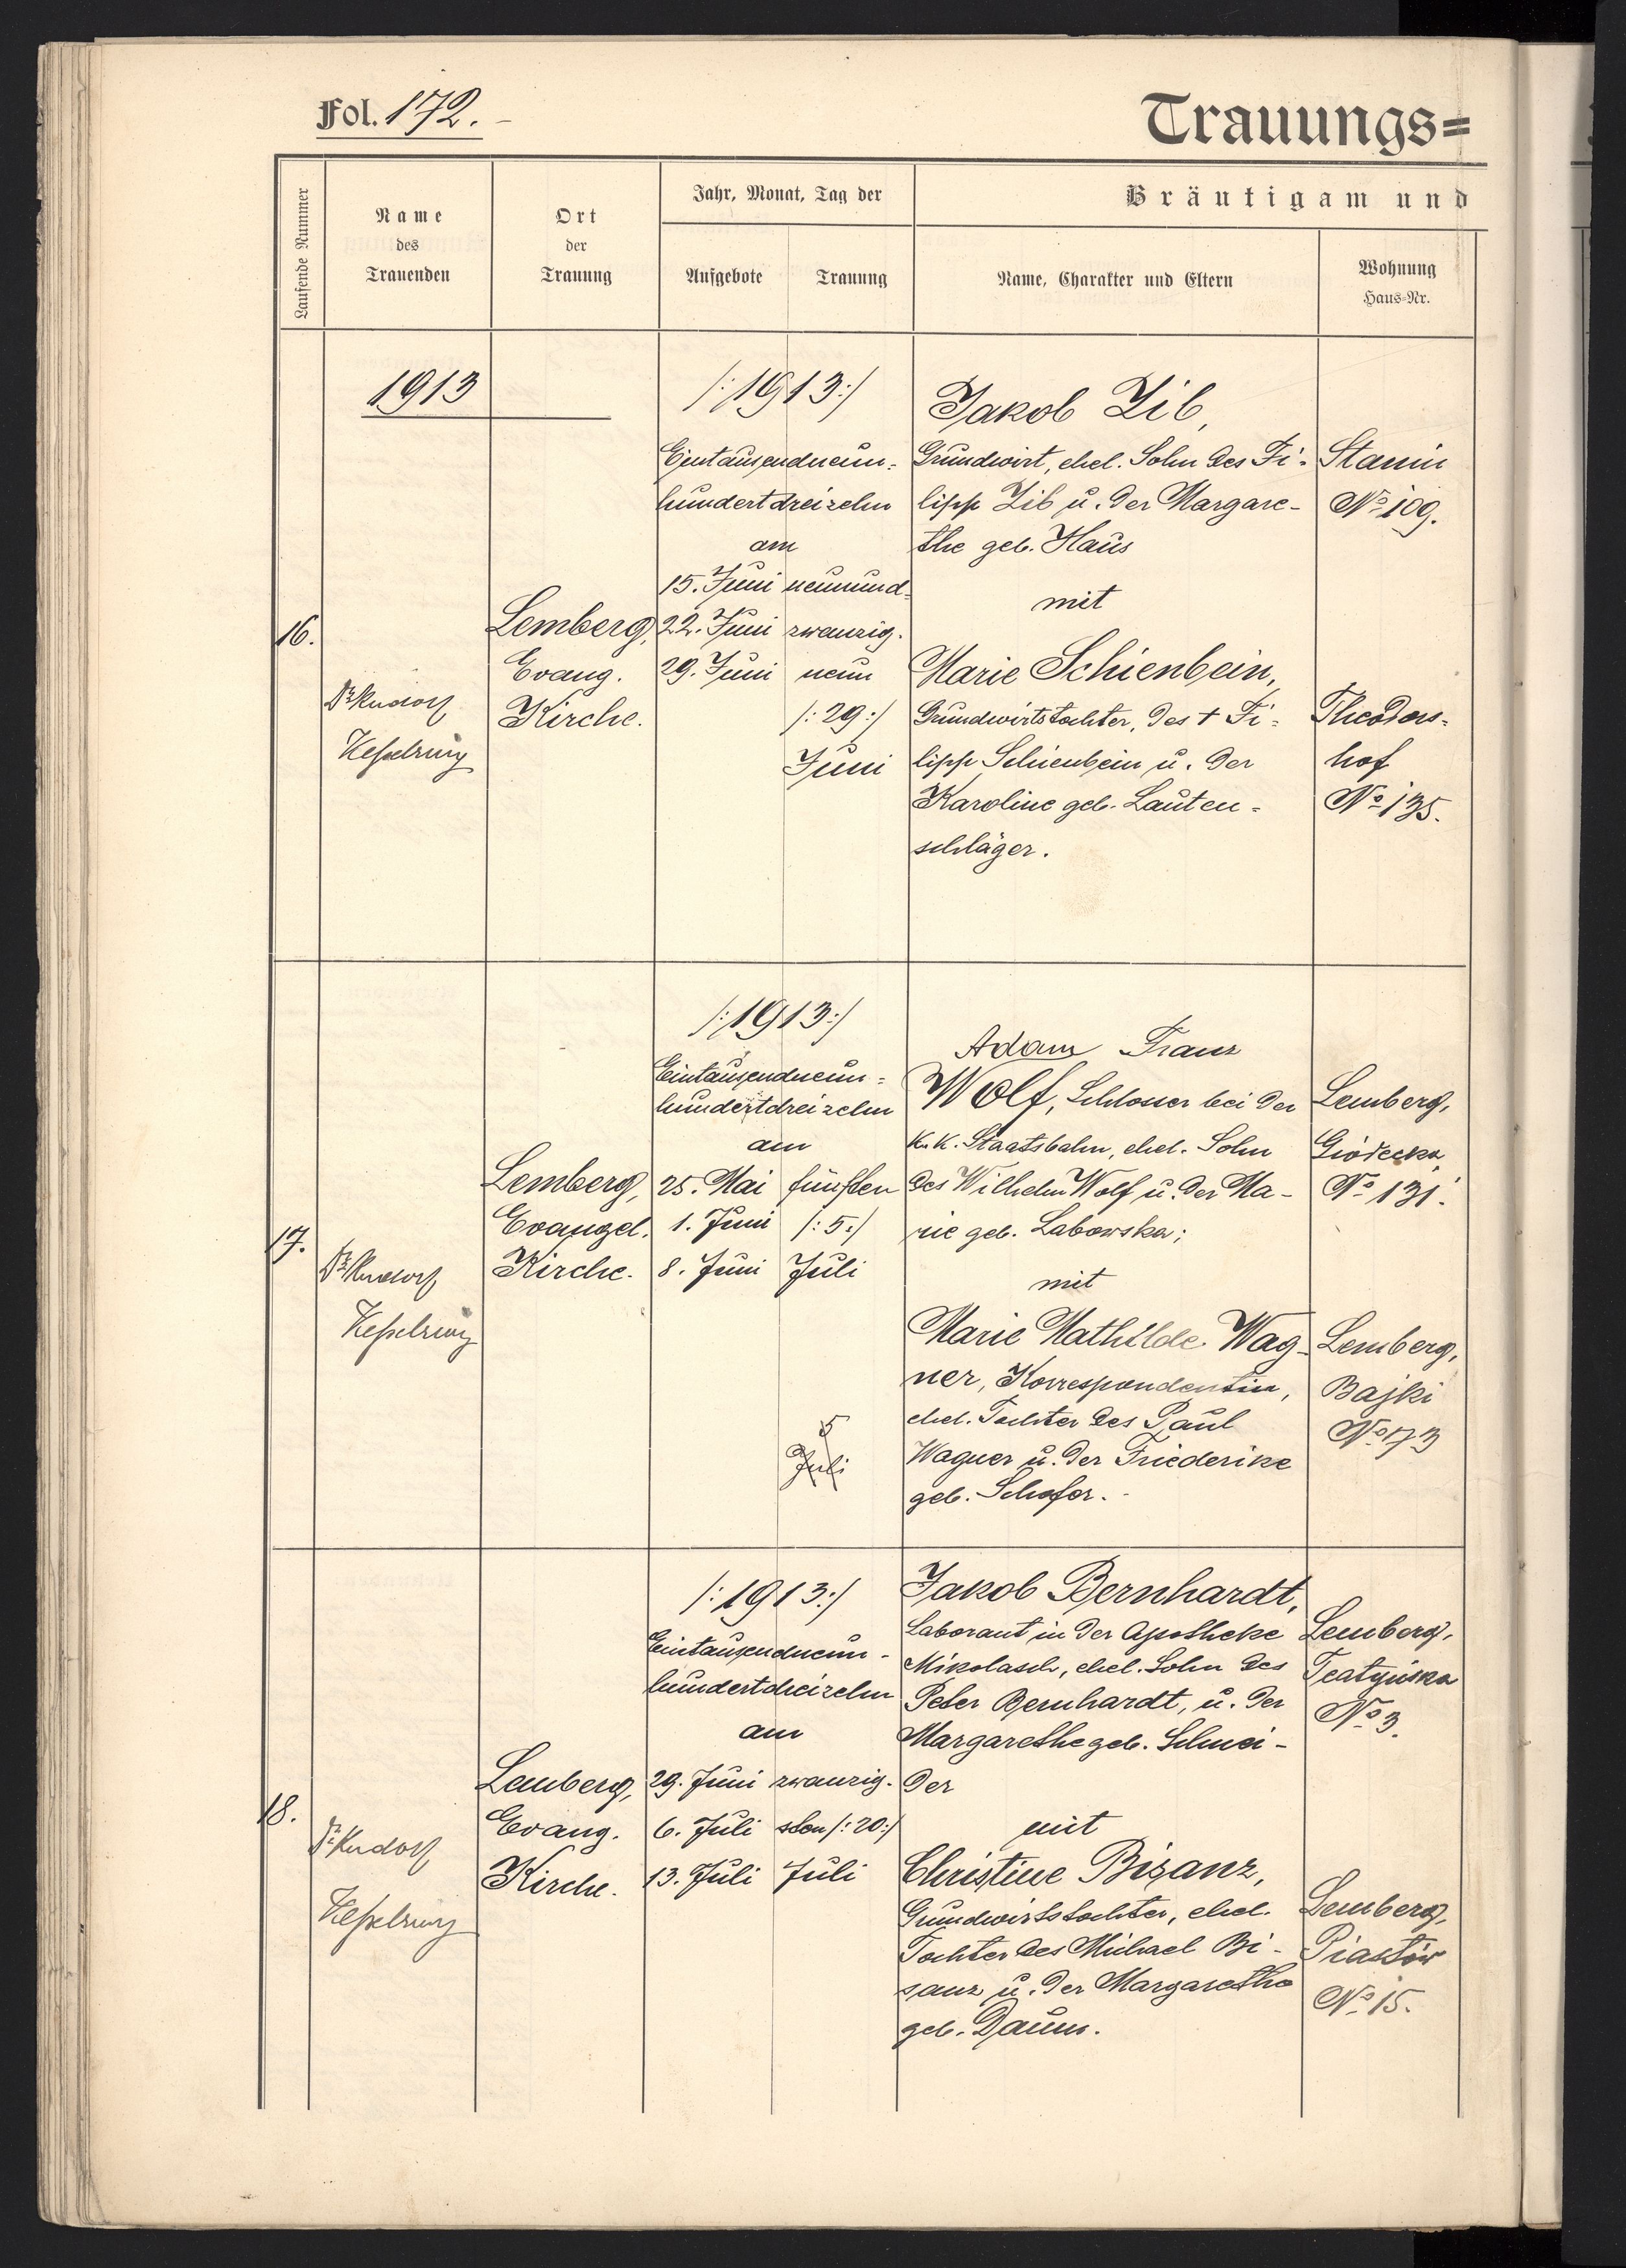 Fol. 172.
Trauungs=
Laufende Nummer
Name
des
Trauenden
Ort
der
Trauung
Jahr, Monat, Tag der
Aufgebote
Trauung
Bräutigam und
Name, Charakter und Eltern
Wohnung
Haus-Nr.
1913
16.
Dr. Rudolf
Keßelring
Lemberg,
Evang.
Kirche.
/:1913:/
Eintausendneun-
hundertdreizehn
am
15. Juni neunund-
22. Juni zwanzig-
29. Juni neun
/:29:/
Juni
Jakob Zib,
Grundwirt, ehel. Sohn des Fi-
lipp Zib u. der Margare-
the geb. Haus
mit
Marie Schienbein,
Grundwirtstochter, des + Fi-
lipp Schienbein u. der
Karoline geb. Lauten-
schläger.
Stanin
No 109.
Theodors-
hof
No 135.
17.
Dr. Rudolf
Keßelring
Lemberg,
Evangel.
Kirche.
/:1913:/
Eintausendneun-
hundertdreizehn
am
25. Mai fünften
1. Juni /:5:/
8. Juni Juli
5
Juli
Adam Franz
Wolf, Schlosser bei der
k. k. Staatsbahn, ehel. Sohn
des Wilhelm Wolf u. der Ma-
rie geb. Labowska;
mit
Marie Mathilde Wag-
ner, Korrespondentin,
ehel. Tochter des Paul
Wagner u. der Friederike
geb. Schafer.
Lemberg,
Gródecka
No 131.
Lemberg,
Bajki
No 173
18.
Dr. Rudolf
Keßelring
Lemberg,
Evang.
Kirche.
/:1913:/
Eintausendneun-
hundertdreizehn
am
29. Juni zwanzig-
6. Juli sten /:20:/
13. Juli Juli
Jakob Bernhardt,
Laborant in der Apotheke
Mikolasch, ehel. Sohn des
Peter Bernhardt, u. der
Margarethe geb. Schnei-
der
mit
Christine Bisanz,
Grundwirtstochter, ehel.
Tochter des Michael Bi-
sanz u. der Margarethe
geb. Daum.
Lemberg,
Teatyńska
No 3.
Lemberg,
Piastów
No 15.